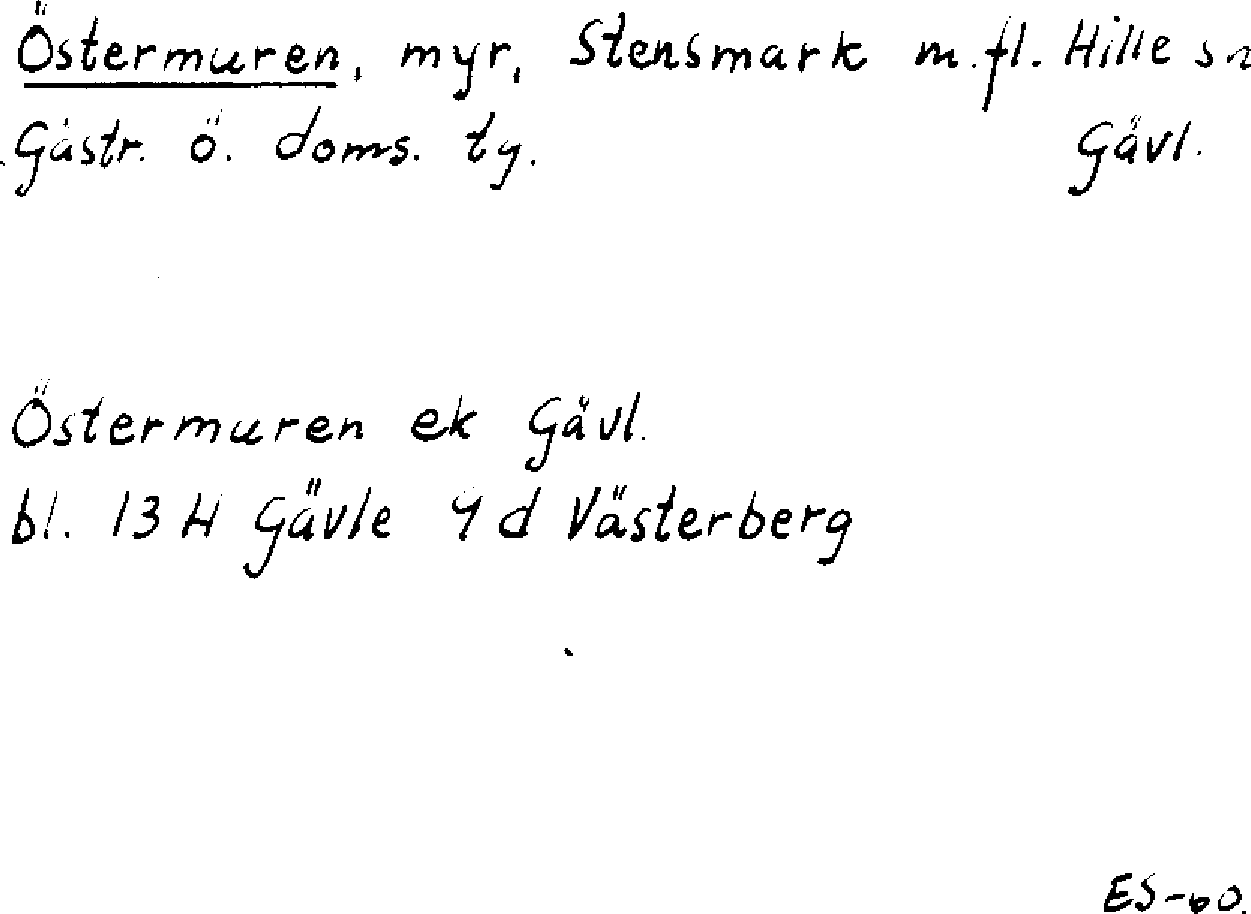 Östermuren, myr, Stensmark m.fl. Hille sn
Gästr. ö. doms. tg. Gävl.
Östermuren ek Gävl.
bl. 13 H Gävle 4 d Västerberg
ES-60.